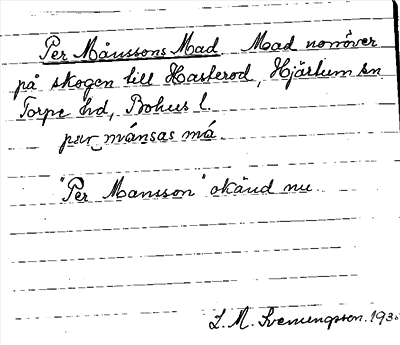 Per Månssons Mad. Mad norröver
på skogen till Hasterod, Hjärtum sn
Torpe hd, Bohus l.
pær månsas má.
"Per Mansson" okänd nu.
L. M. Svenungsson. 193